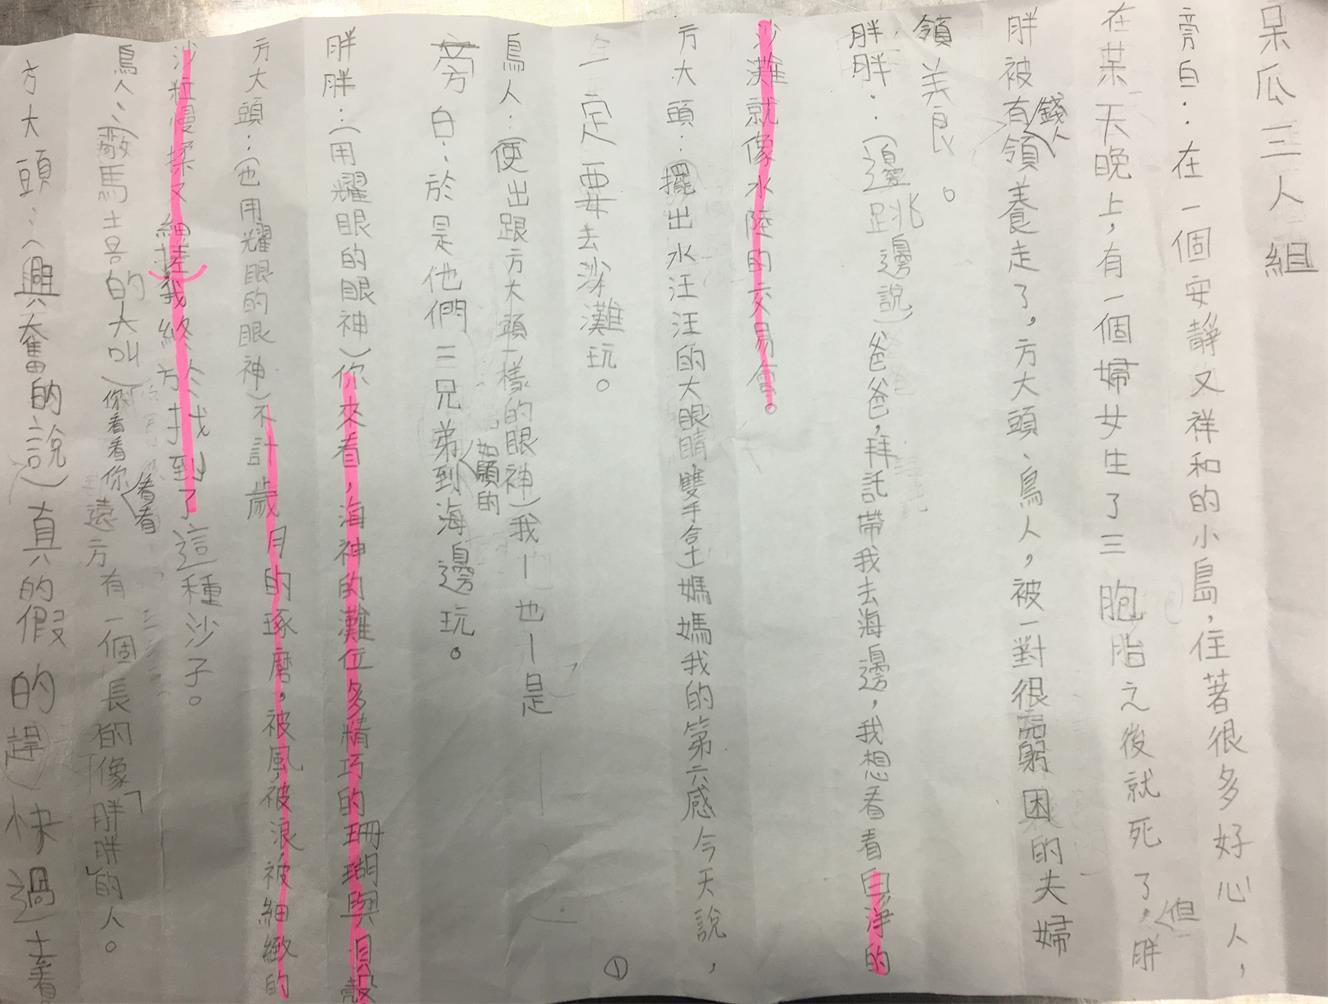 呆瓜三人組
旁白：在一個安靜又祥和的小島，住著很多好心人，
在某天晚上，有一個婦女生了三胞胎之後就死了，但胖
胖被有錢人領養走了，方大頭、鳥人，被一對很窮困的夫婦
領養。
胖胖：（邊跳邊說）爸爸，拜託帶我去海邊，我想看看白淨的
沙灘就像水陸的交易會。
方大頭：擺出水汪汪的大眼睛雙手拿）媽媽我的第六感今天說，
一定要去沙灘玩。
鳥人：（使出跟方大頭一樣的眼神）我－也－是
旁白：於是他們三兄弟如願的到海邊玩。
胖胖：（用耀眼的眼神）你來看，海神的灘位多精巧的珊瑚與貝殼
方大頭：（也用耀眼的眼神）不計歲月的琢磨，被風被浪被細緻的
沙粒慢揉又細搓我終於找到了這種沙子。
鳥人：（敲馬士吾的大叫）你看看你看看遠方有一個長的像「胖胖」的人。
方大頭：（興奮的說）真的假的趕快過去看
①